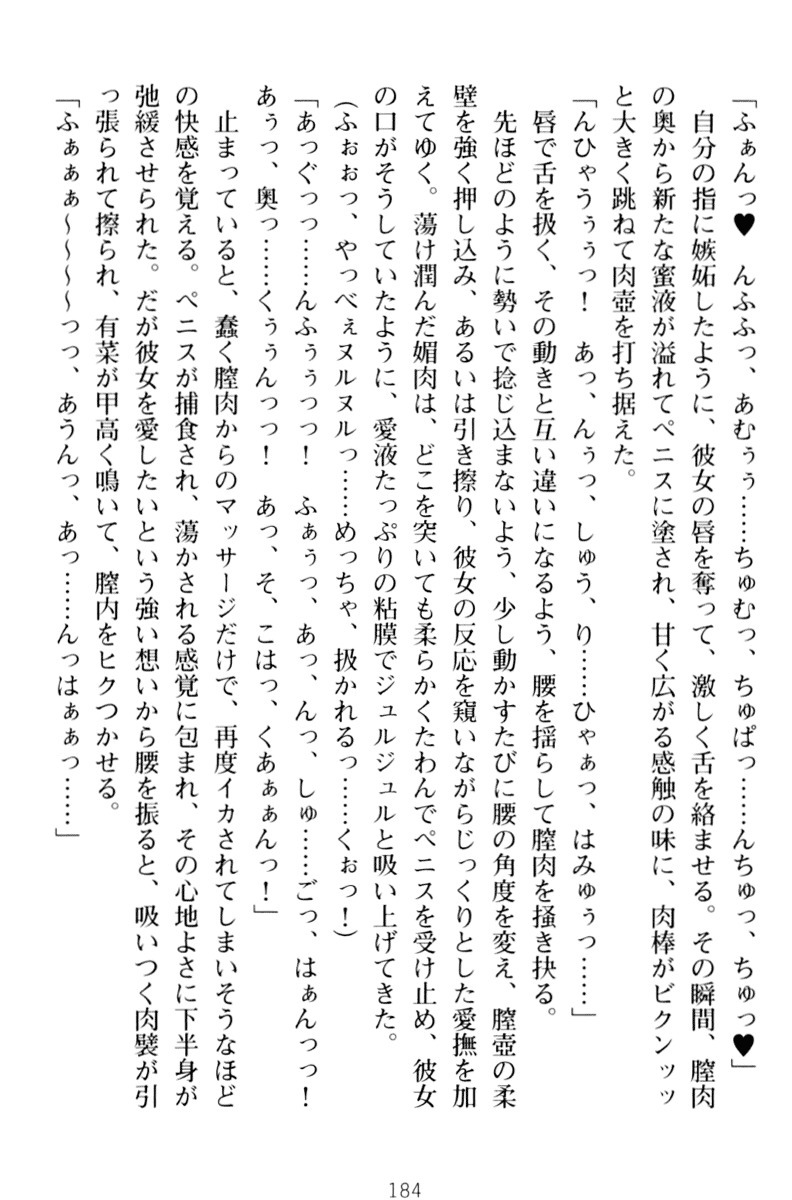 「ふぁんっ♥　んふふっ、あむぅぅ……ちゅむっ、ちゅぱっ……んちゅっ、ちゅっ♥」
自分の指に嫉妬したように、彼女の唇を奪って、激しく舌を絡ませる。その瞬間、膣肉
の奥から新たな蜜液が溢れてペニスに塗され、甘く広がる感触の味に、肉棒がビクンッッ
と大きく跳ねて肉壺を打ち据えた。
「んひゃうぅぅっ！　あっ、んぅっ、しゅう、り……ひゃぁっ、はみゅぅっ……」
唇で舌を扱く、その動きと互い違いになるよう、腰を揺らして膣肉を掻き抉る。
先ほどのように勢いで捻じ込まないよう、少し動かすたびに腰の角度を変え、膣壺の柔
壁を強く押し込み、あるいは引き擦り、彼女の反応を窺いながらじっくりとした愛撫を加
えてゆく。蕩け潤んだ媚肉は、どこを突いても柔らかくたわんでペニスを受け止め、彼女
の口がそうしていたように、愛液たっぷりの粘膜でジュルジュルと吸い上げてきた。
(ふぉぉっ、やっべぇヌルヌルっ……めっちゃ、扱かれるっ……くぉっ！)
「あっぐっっ……んふぅぅっっ！　ふぁぅっ、あっ、んっ、しゅ……ごっ、はぁんっっ！
あぅっ、奥っ……くぅぅんっっ！　あっ、そ、こはっ、くあぁぁんっ！」
止まっていると、蠢く膣肉からのマッサージだけで、再度イカされてしまいそうなほど
の快感を覚える。ペニスが捕食され、蕩かされる感覚に包まれ、その心地よさに下半身が
弛緩させられた。だが彼女を愛したいという強い想いから腰を振ると、吸いつく肉襞が引
っ張られて擦られ、有菜が甲高く鳴いて、膣内をヒクつかせる。
「ふぁぁぁ〜〜〜〜っっ、あうんっ、あっ……んっはぁぁっ……」
184